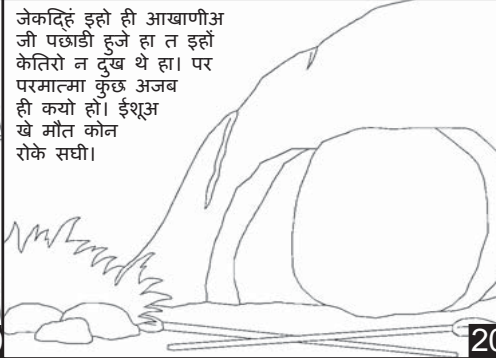 जेकदि्हं इहो ही आखाणीअ
जी पछाडी हुजे हा त इहों
केतिरो न दुख थे हा। पर
परमात्मा कुछ अजब
ही कयो हो। ईशूअ
खे मौत कोन
रोके सघी।
20